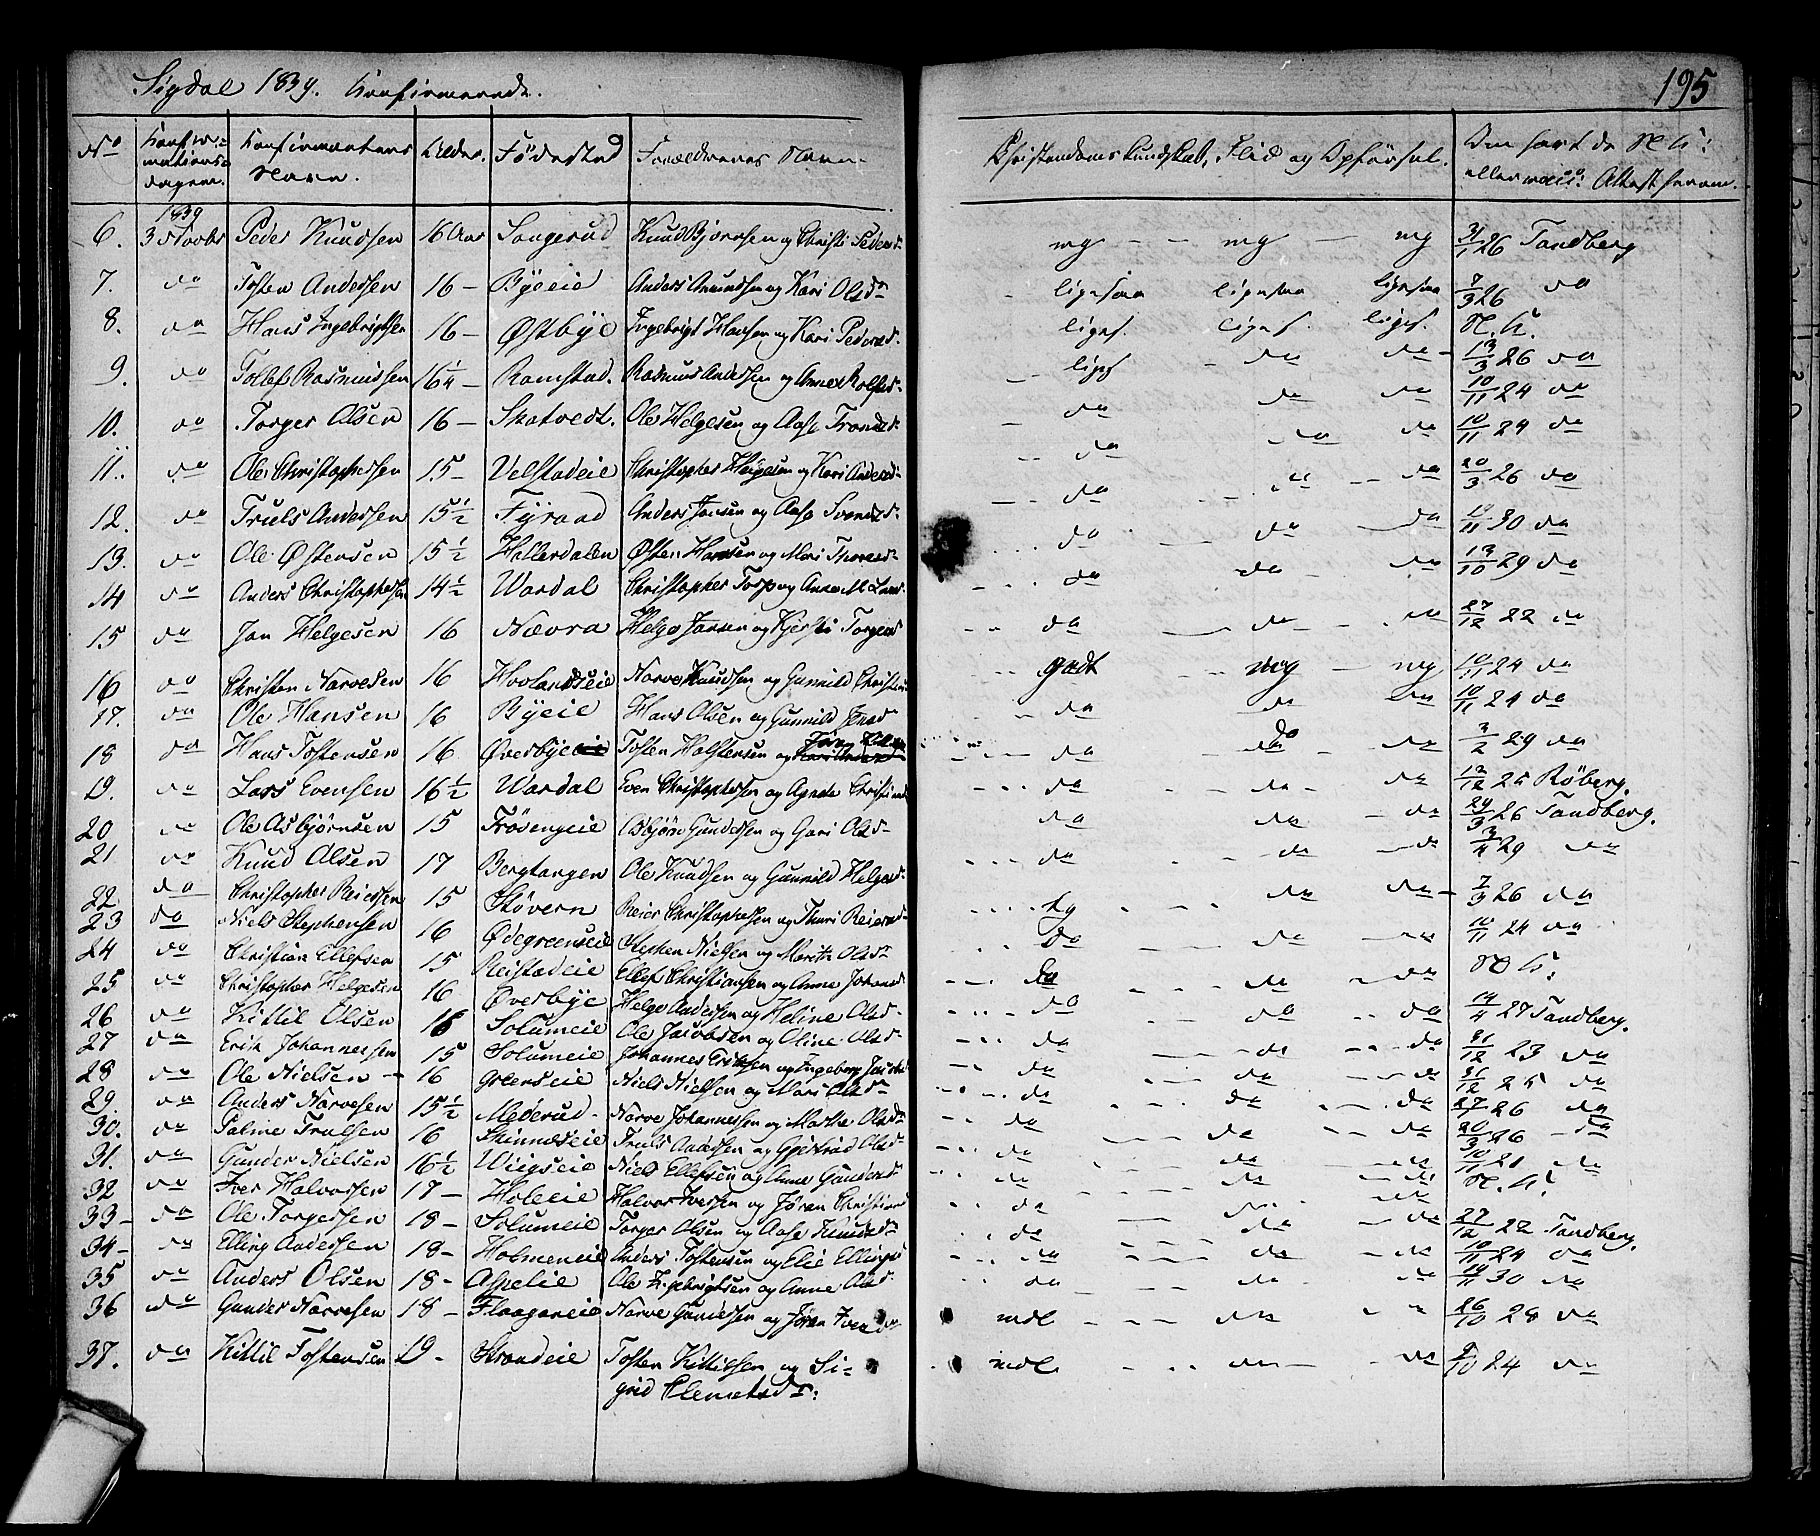 Sigdal 1839. Konfirmerede. 195
No Konfirmationsdagen. Konfirmantens Navn. Alder. Fødested Forældrenes Navn Christendoms Kundskab, Flid og Opførsel.
1839
6. 3 Novbr Peder Knudsen 16 Aar Knud Bjørnsen og Christi Pedersd: mg — mg — mg 26 Tandberg
7. do Tosten Andersen 16 — Byeeie Anders Amundsen og Kari Olsdr ligesaa ligesaa ligesaa 7/3 26 do
8. do Hans Ingebrigtsen 16 — Østbye Ingebrigt Hansen og Kari Pedersd: liges. liges. liges. N. K.
9. do Tollef Rasmusen 16¼ — Ramstad. Rasmus Andersen og Anne Rolfsd: — do do — 13/3 26 do
10. do Torger Olsen 16 — Skatvedt. Ole Helgesen og Aase Trondsd: do do do 10/11 24 do
11. do Ole Christophersen 15 — Velstadeie Christopher Helgesen og Kari Andersd: do do do 10/11 24 do
12. do Truels Andersen 15½ Fyraad Anders Jansen og Aase Svendsd: do do do 20/3 26 do
13. do Ole Østensen 15½ Hellerdalen Østen Hansen og Mari do do do 30 do
14 do Anders Christophersen 14½ Wardal Christopher Torp og Anne M. do do do 13/10 29 do
15 do Jan Helgesen 16 Nævra Helge Jansen og Kjersti Torgersd do do do 27/12 22 do
16 do Christen Narvesen 16 Hovlandseie Narve Knudsen og Gunnild godt mg mg 10/11 24 do
17. do Ole Hansen 16 Byeie Hans Olsen og Gunnild do do do 10/11 24 do
18 do Hans Tostensen 16 Øverbye Tosten Halstensen og do do do 3/2 29 do
19. do Lars Evensen 16½ Wardal Even Christophersen og Agnete do do do 12/12 25 Røberg.
20 do Ole Asbjørnsen 15 Frøsengeie Asbjørn Gundersen og Gari Olsd: do do do 29/3 26 Tandberg.
21 do Knud Olsen 17 Bergtangen Ole Knudsen og Gunnild Helgesd: do do do 29 do
22 do Christopher Reiersen 15 Støvern Reier Christophersen og Thuri Reiersd: tg do do 7/3 26 do
23 do Niels Stephensen 16 Ødegreenseie Stephen Nielsen og Marthe Olsd: do do do 10/11 24 do
24 do Christian Ellefsen 15 Reistadeie Ellef Christiansen og Anne Johansd do do do N. K.
25 do Christopher Helgesen 16 Øverbye Helge Andersen og Heline Olsd: do do do 14/4 27 Tandberg.
26 do Kittil Olsen 16 Solumeie Ole Jacobsen og Oline Olsd: do do do 31/12 23 do
27 do Erik Johannessen 15 Solumeie Johannes Eriksen og Ingeborg do do do 31/12 25 do
28 do Ole Nielsen 16 Greenseie Niels Nielsen og Mari Olsdr do do do 26 do
29. do Anders Narvesen 15½ Mederud. Narve Johannessen og Marthe Olsdr do do do 20/3 26 do
30. do Palme Trulsen 16 Skinneseie Truls Andersen og Gjertrud Olsdr do do do 10/11 21 do
31. do Gunder Nielsen 16½ Wiigseie Niels Ellefsen og Anne Gundersd do do do N. K.
32 do Iver Halvorsen 17 — Holeeie Halvor Iversen og Jøran do do
33 — do Ole Torgersen 18 — Solumeie Torger Olsen og Aase Knudsdr do do do 27/12 22 Tandberg.
34 — do Elling Andersen 18 — Holmeneie Anders Tostensen og Elie Ellingsd do do do 10/11 24 do
35 do Anders Olsen 18 — Aslelie Ole Ingebrigtsen og Anne Olsd: do do do 30 do
36 do Gunder Narvesen 18 — Flaaganeie Narve Gundersen og Jøran mdl do 26/10 28 do
37. do Kittil Tostensen 19 — Strandeie Tosten Kittilsen og Sigrid Clemetsdr: mdl do do 24 do